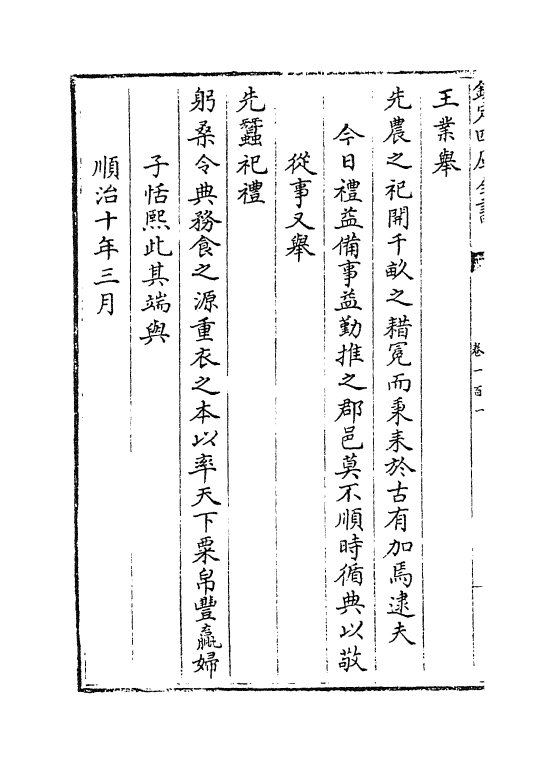 欽定四庫全書
卷一百一
王業舉
先農之祀開千畝之耤冕而秉耒於古有加焉逮夫
今日禮益備事益勤推之郡邑莫不順時循典以敬
從事又舉
先蠶祀禮
躬桑令典務食之源重衣之本以率天下粟帛豐贏婦
子恬熙此其端與
順治十年三月